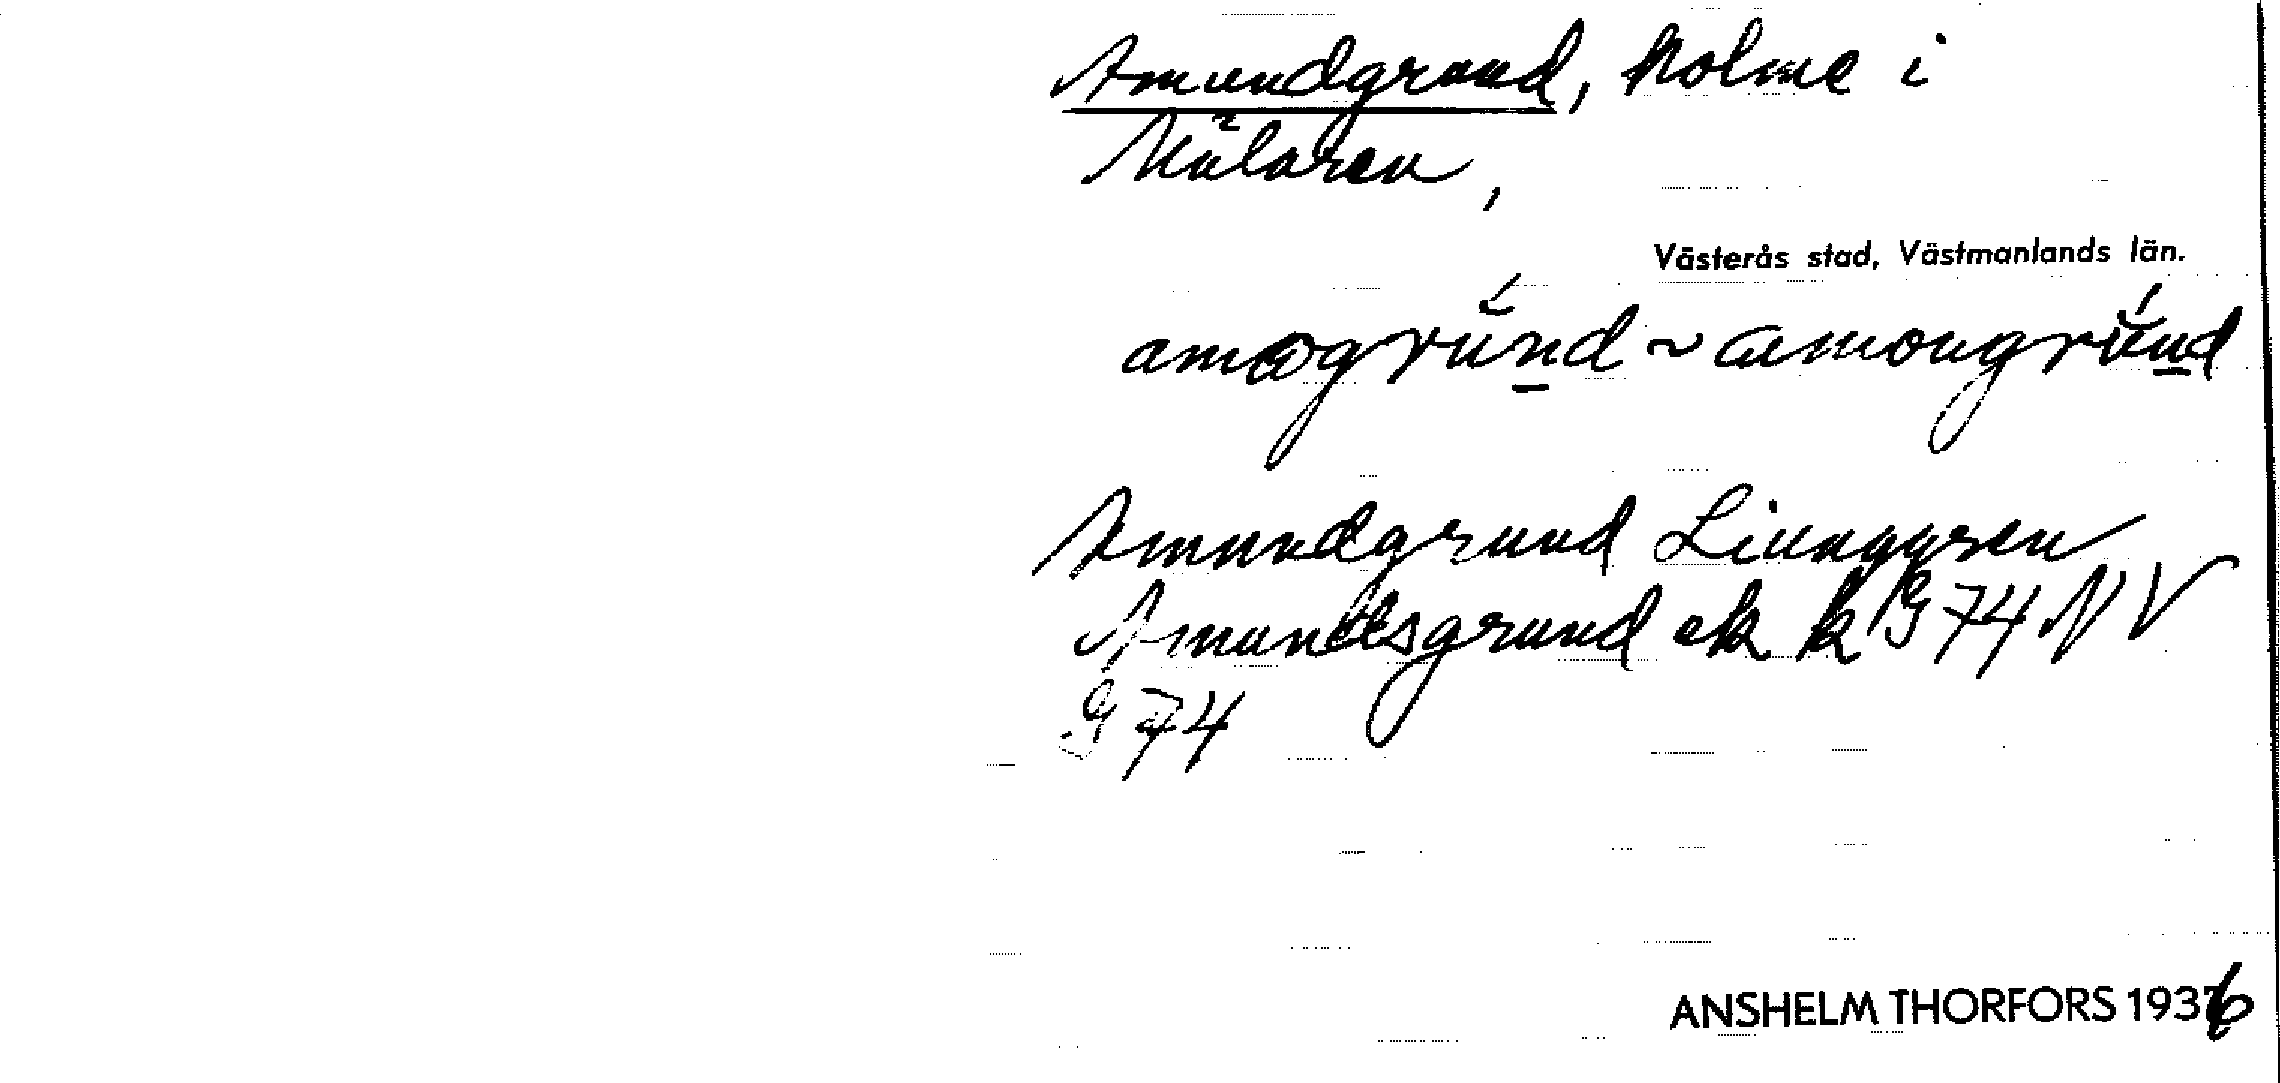 Amundgrund, holme i
Mälaren,
Västerås stad, Västmanlands län.
amogrúnd ~ amongrúnd
Amundgrund Liunggren
Amundsgrund ek k G 74 NV
G 74
ANSHELM THORFORS 1936